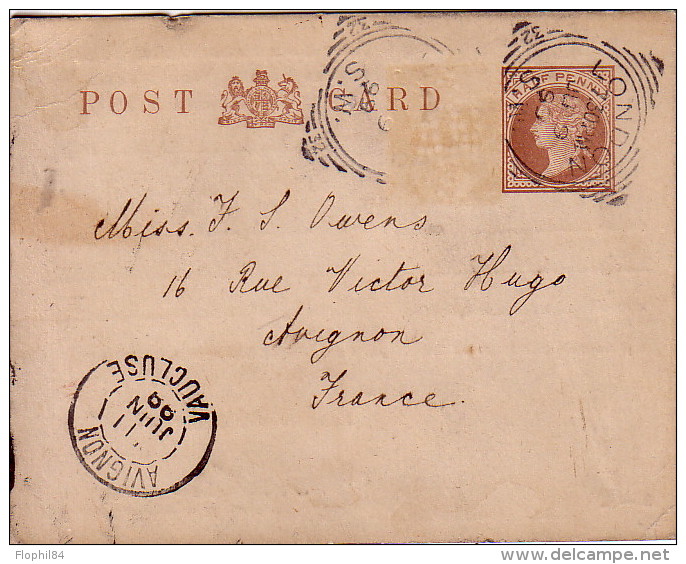 POST CARD
HALF PENNY
LONDON S.W.
32
S.W.
32
32
Miss. F. S. Owens
16 Rue Victor Hugo
Avignon
France.
AVIGNON
11
JUIN
00
VAUCLUSE
Flophil84
delcampe.net